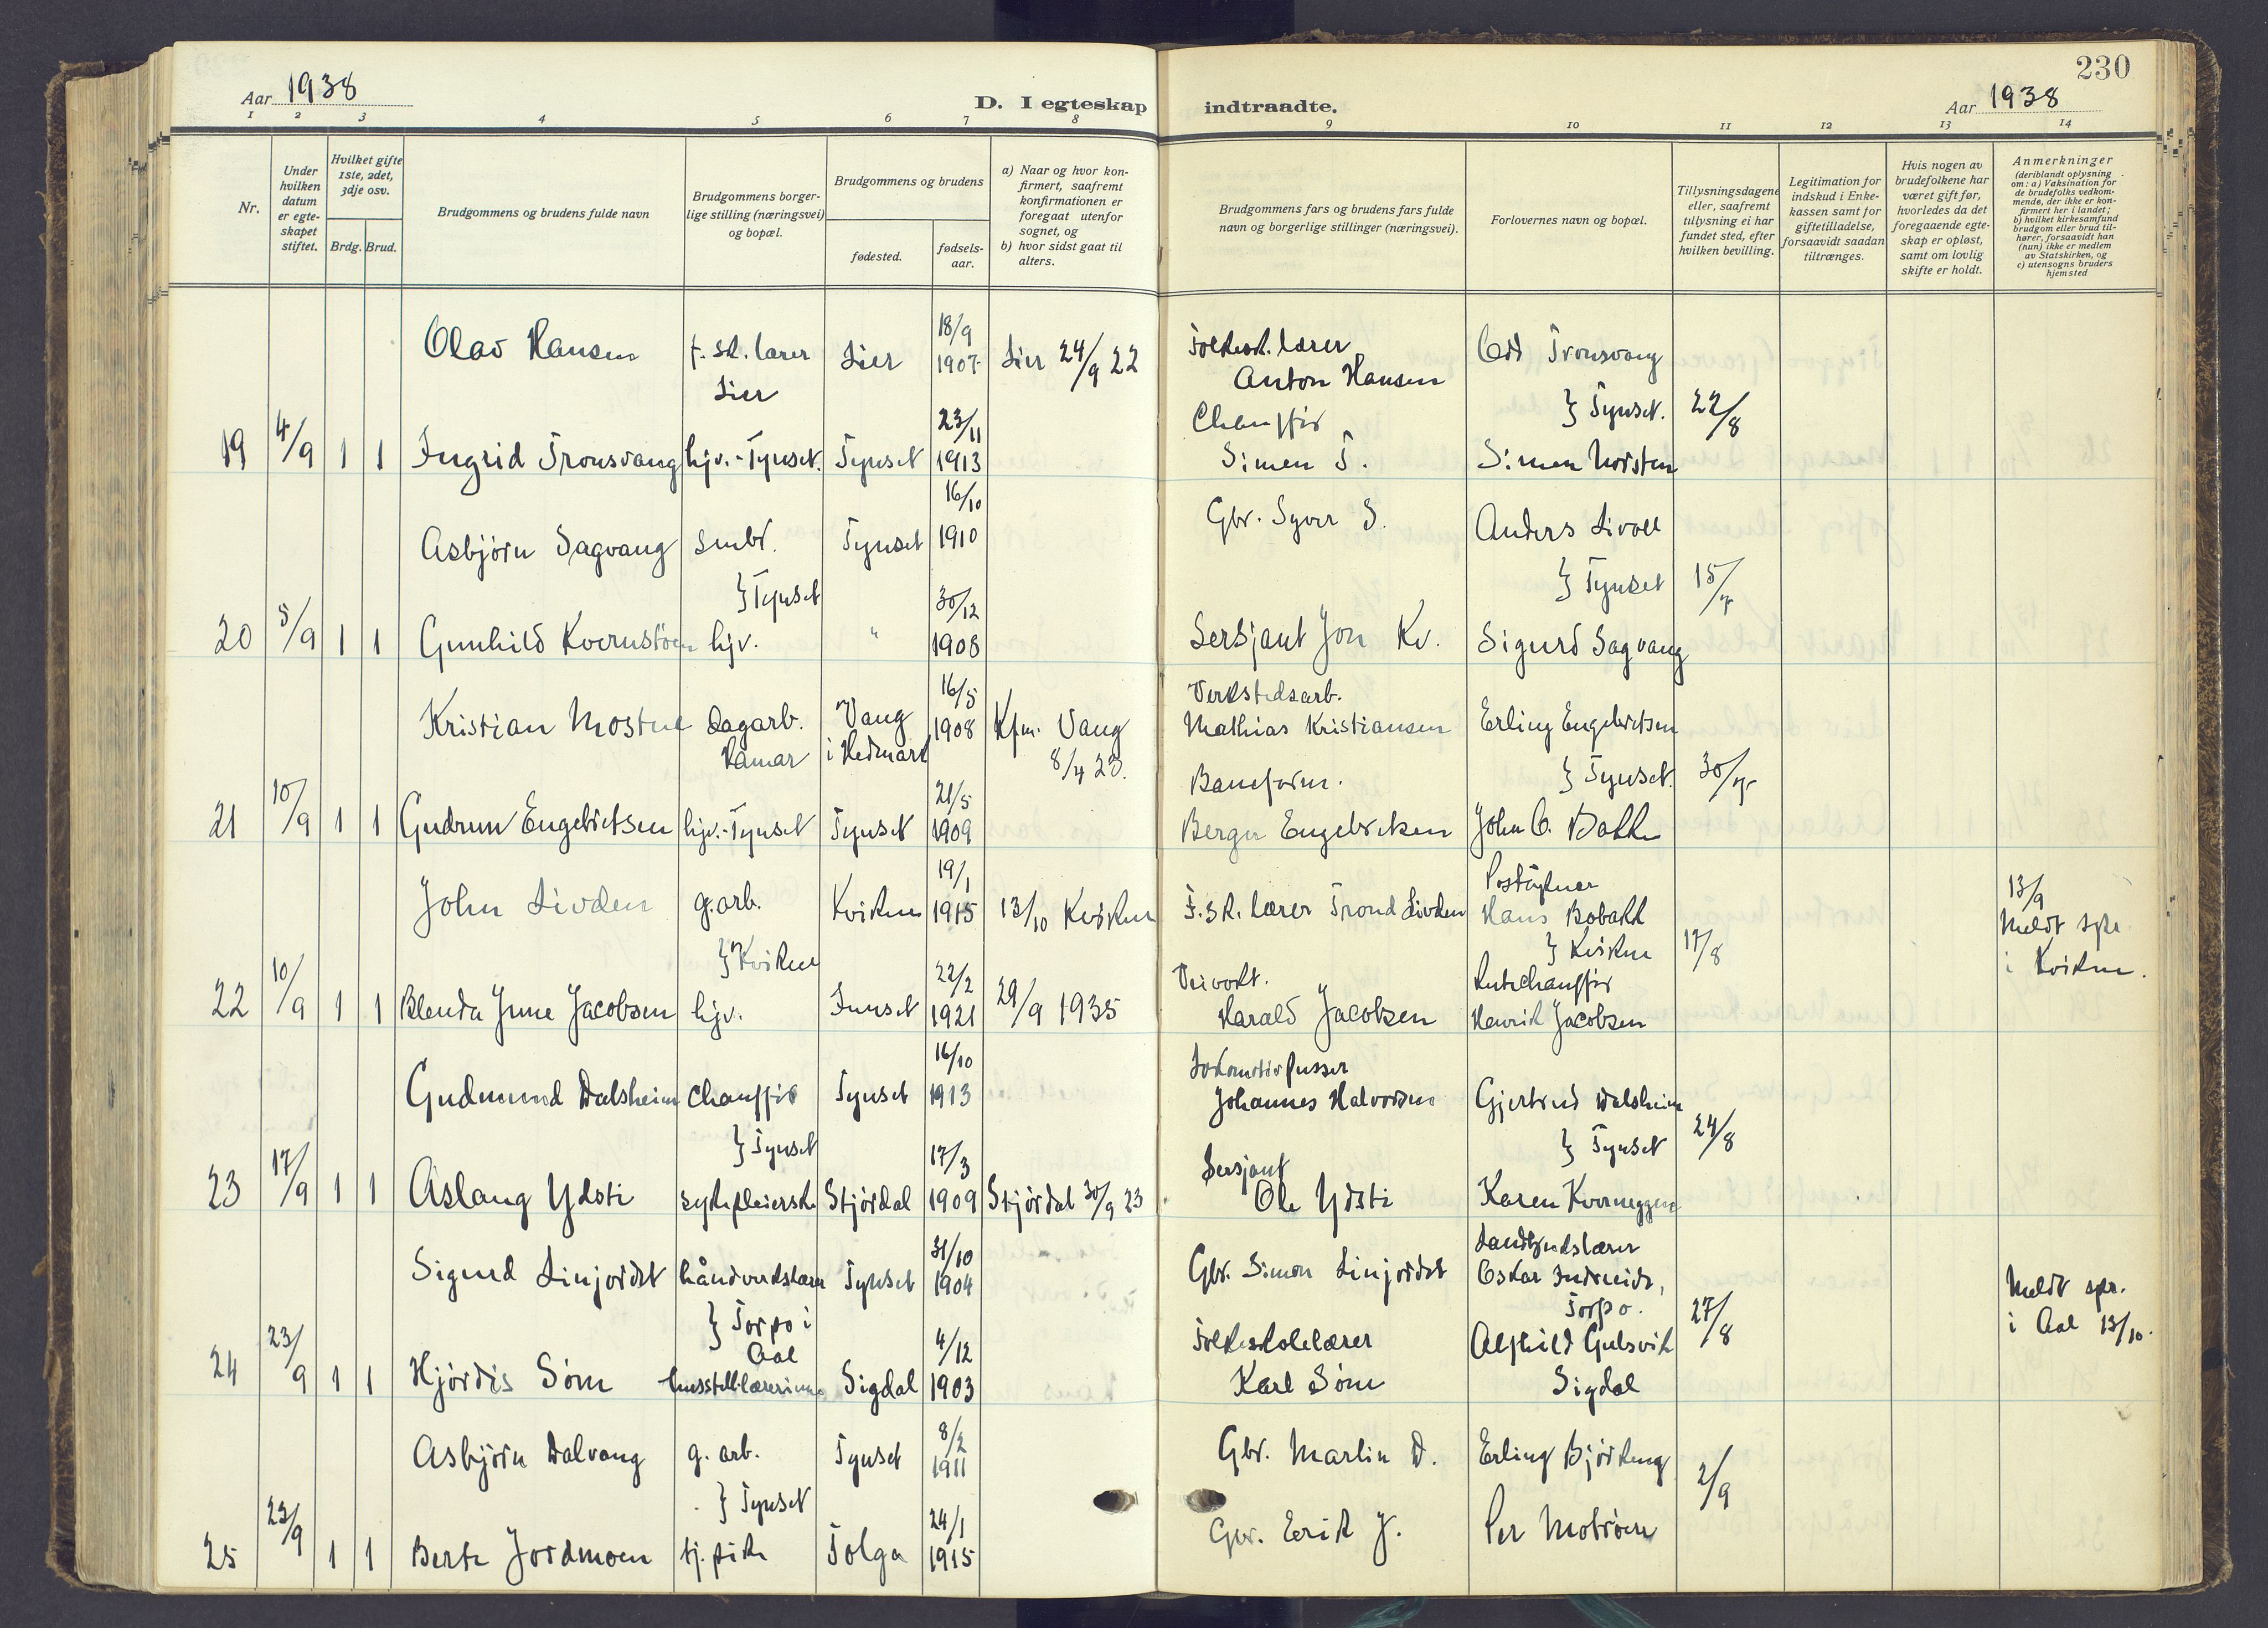 Aar 1938
D. I egteskap
1 2 3 4 5 6 7 8
Nr.
Under hvilken datum er egteskapet stiftet.
Hvilket gifte 1ste, 2det, 3dje osv.
Brdg. Brud.
Brudgommens og brudens fulde navn
Brudgommens borgerlige stilling (næringsvei) og bopæl.
Brudgommens og brudens
fødested.
fødselsaar.
a) Naar og hvor konfirmert, saafremt konfirmationen er foregaat utenfor sognet, og
b) hvor sidst gaat til alters.
18/9
Olav Hansen f. sk. lærer Lier 1907 Lier 24/9 22
Lier
23/11
19 4/9 1 1 Ingrid Tronsvang hjv. - Tynset. Tynset 1913
16/10
Asbjörn Sagvang smbr. Tynset 1910
} Tynset
30/12
20 5/9 1 1 Gunhild Kvernstöen hjv. " 1908
16/5
Kristian Mostue dagarb. Vang 1908 Kfm. Vang
Hamar i Hedmark 8/4 23.
21/5
21 10/9 1 1 Gudrun Engebretsen hjv. - Tynset Tynset 1909
19/1
John Livden g. arb. Kvikne 1915 13/10 Kvikne
} Kvikne
22/2
22 10/9 1 1 Blenda June Jacobsen hjv. Innset 1921 29/9 1935
16/10
Gudmund Dalsheim chaufför Tynset 1913
} Tynset
17/3
23 17/9 1 1 Aslaug Ydsti sykepleierske Stjördal 1909 Stjördal 30/9 23
31/10
Sigurd Linjordet håndverkslærer Tynset 1904
} Torpo i
Aal
4/12
24 23/9 1 1 Hjördis Söm husstell.lærerinne Sigdal 1903
8/2
Asbjörn Dalvang g. arb. Tynset 1911
} Tynset
24/1
25 23/9 1 1 Berte Jordmoen tj. pike Tolga 1915
230
indtraadte.
Aar 1938
9 10 11 12 13 14
Brudgommens fars og brudens fars fulde navn og borgerlige stillinger (næringsvei).
Forlovernes navn og bopæl.
Tillysningsdagene eller, saafremt tillysning ei har fundet sted, efter hvilken bevilling.
Legitimation for indskud i Enkekassen samt for giftetilladelse, forsaavidt saadan tiltrænges.
Hvis nogen av brudefolkene har været gift før, hvorledes da det foregaaende egteskap er opløst, samt om lovlig skifte er holdt.
Anmerkninger (deriblandt oplysning om: a) Vaksination for de brudefolks vedkommende, der ikke er konfirmert her i landet; b) hvilket kirkesamfund brudgom eller brud tilhører, forsaavidt han (hun) ikke er medlem av Statskirken, og c) utensogns bruders hjemsted
Folkesk. lærer Odd Tronsvang
Anton Hansen
Chaufför } Tynset. 22/8
Simen T. Simen
Gbr. Syver S. Anders Livoll
} Tynset 15/7
Sersjant Jon Kv. Sigurd Sagvang
Verkstedsarb.
Mathias Kristiansen Erling Engebretsen
Baneform. } Tynset. 30/7
Berger Engebretsen John O. Bakke
Poståpner
F. sk. lærer Trond Livden Hans Bobakk
} Kvikne 17/8
13/9
Meldt spr.
i Kvikne.
Veivokt. Rutechaufför
Harald Jacobsen Henrik Jacobsen
Lokomotivpusser
Johannes Halvorsen Gjertrud Dalsheim
} Tynset 24/8
Sersjant
Ole Ydsti Karen Kverneggen
Landbrukslærer
Gbr. Simon Linjordet Oskar Indreeide,
Torpo. 27/8
Meldt spr.
i Aal 13/10.
Folkeskolelærer Alfhild Gulsvik
Karl Söm Sigdal
Gbr. Martin D. Erling Björkeng
2/9
Gbr. Erik J. Per Motröen